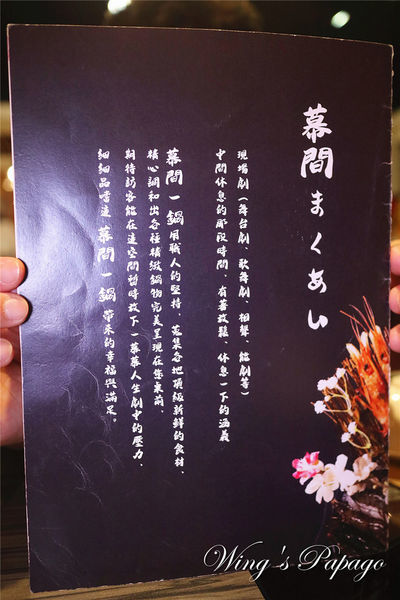 幕間まくあい
現場劇(舞台劇、歌舞劇、相聲、能劇等)
中間休息的那段時間、有著放鬆、休息一下的涵義
幕間一鍋用職人的堅持、蒐集各地頂級新鮮的食材、
精心調和出各種精緻鍋物完美呈現在您桌前、
期待訪客能在這空間暫時放下一幕幕人生劇中的壓力、
細細品嚐這幕間一鍋帶來的幸福與滿足。
Wing's Papago